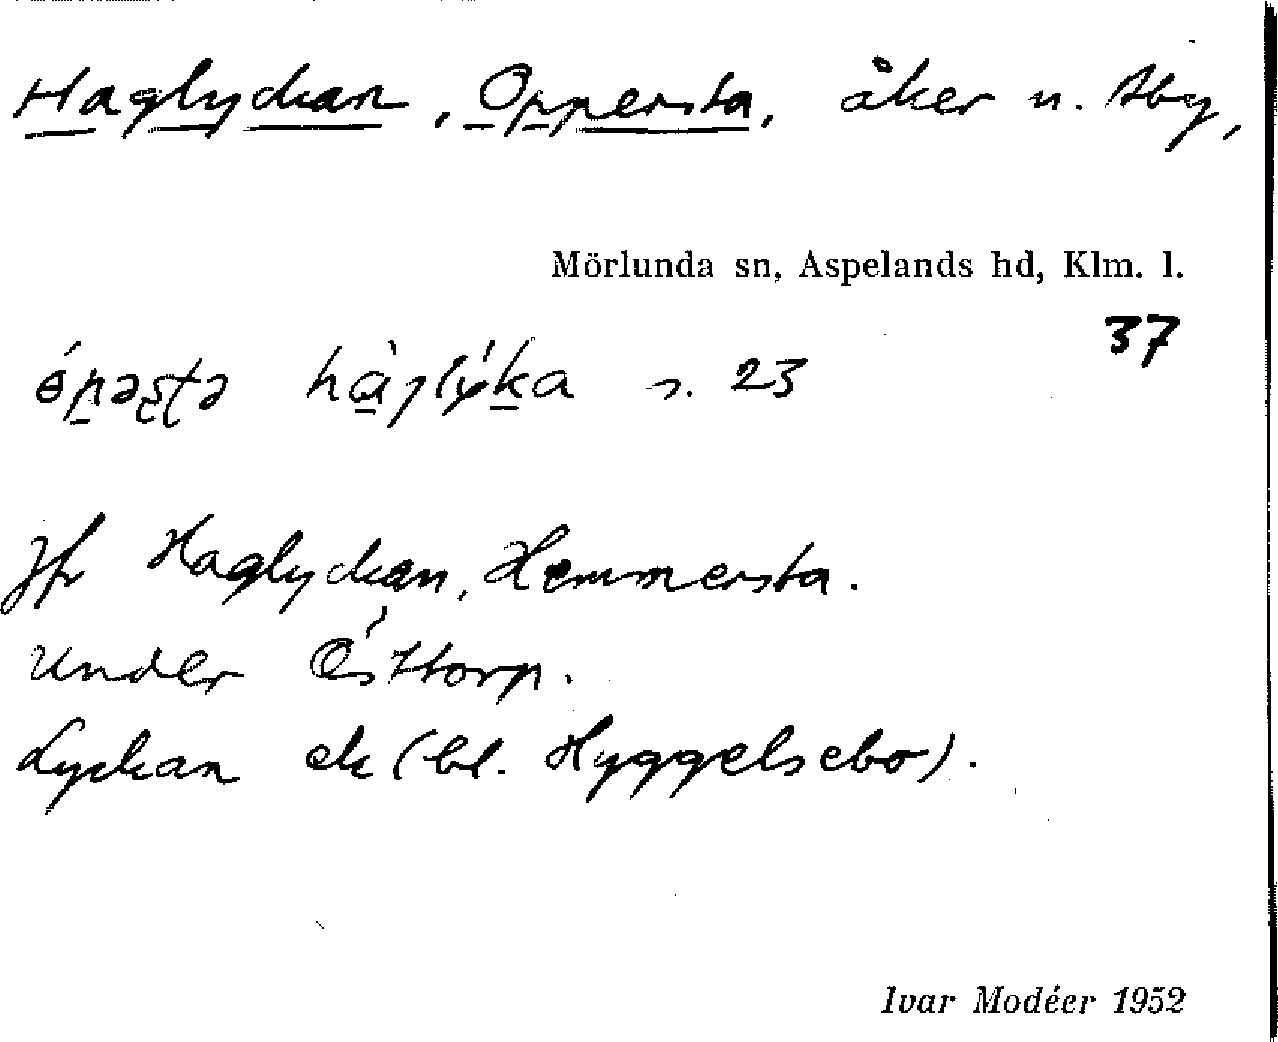 Haglyckan, Oppersta, åker u. Åby,
Mörlunda sn, Aspelands hd, Klm. l.
37
s. 23
Jfr Haglyckan, Hemmersta.
under Östtorp.
Lyckan ek (bl. Hyggelsebo).
Ivar Modéer 1952